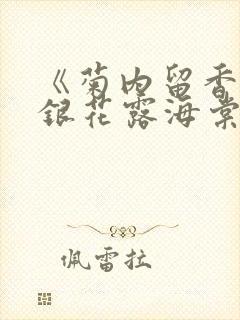 《菊内留香
银花露海棠
佩雷拉